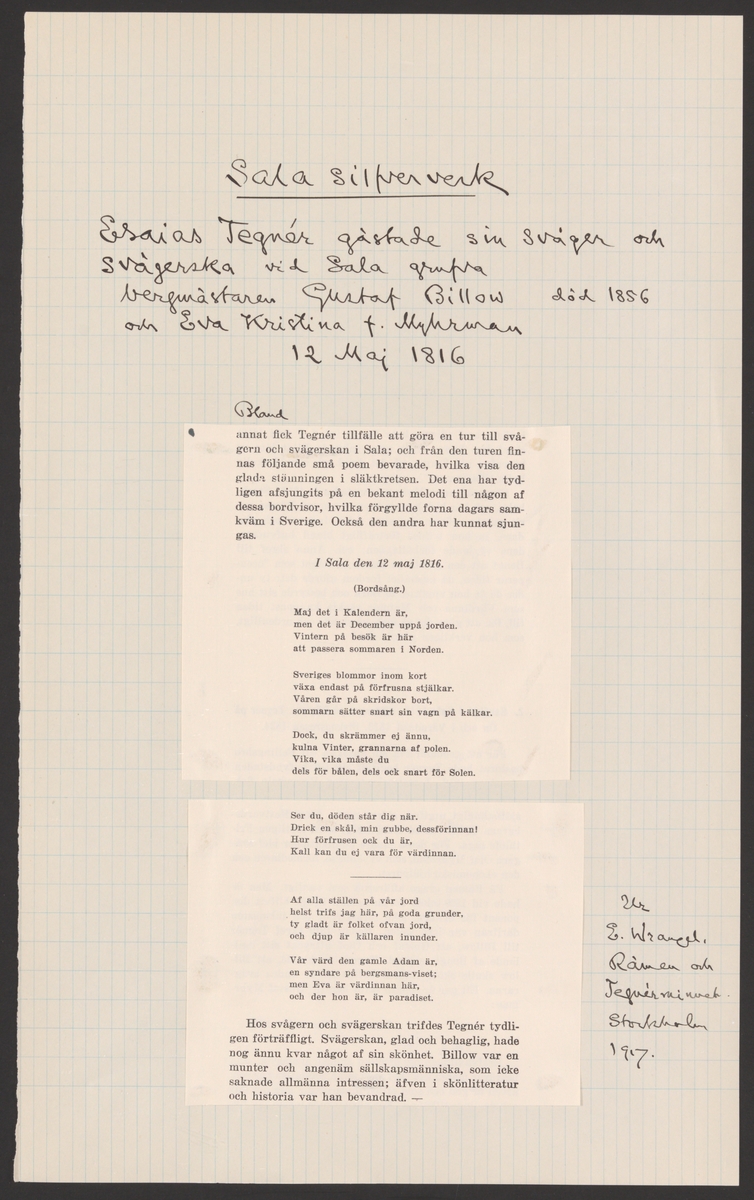 Sala silfververk
Esaias Tegnér gästade sin svåger och
svägerska vid Sala grufva
bergmästaren Gustaf Billow död 1856
och Eva Kristina f. Myhrman
12 Maj 1816
Bland
annat fick Tegnér tillfälle att göra en tur till svå-
gern och svägerskan i Sala; och från den turen fin-
nas följande små poem bevarade, hvilka visa den
glada stämningen i släktkretsen. Det ena har tyd-
ligen afsjungits på en bekant melodi till någon af
dessa bordvisor, hvilka förgyllde forna dagars sam-
kväm i Sverige. Också den andra har kunnat sjun-
gas.
I Sala den 12 maj 1816.
(Bordsång.)
Maj det i Kalendern är,
men det är December uppå jorden.
Vintern på besök är här
att passera sommaren i Norden.
Sveriges blommor inom kort
växa endast på förfrusna stjälkar.
Våren går på skridskor bort,
sommarn sätter snart sin vagn på kälkar.
Dock, du skrämmer ej ännu,
kulna Vinter, grannarna af polen.
Vika, vika måste du
dels för bålen, dels ock snart för Solen.
Ser du, döden står dig när.
Drick en skål, min gubbe, dessförinnan!
Hur förfrusen ock du är,
Kall kan du ej vara för värdinnan.
Af alla ställen på vår jord
helst trifs jag här, på goda grunder,
ty gladt är folket ofvan jord,
och djup är källaren inunder.
Vår värd den gamle Adam är,
en syndare på bergsmans-viset;
men Eva är värdinnan här,
och der hon är, är paradiset.
Hos svågern och svägerskan trifdes Tegnér tydli-
gen förträffligt. Svägerskan, glad och behaglig, hade
nog ännu kvar något af sin skönhet. Billow var en
munter och angenäm sällskapsmänniska, som icke
saknade allmänna intressen; äfven i skönlitteratur
och historia var han bevandrad. —
Ur
E. Wrangel.
Rämen och
Tegnérminnet.
Stockholm
1917.